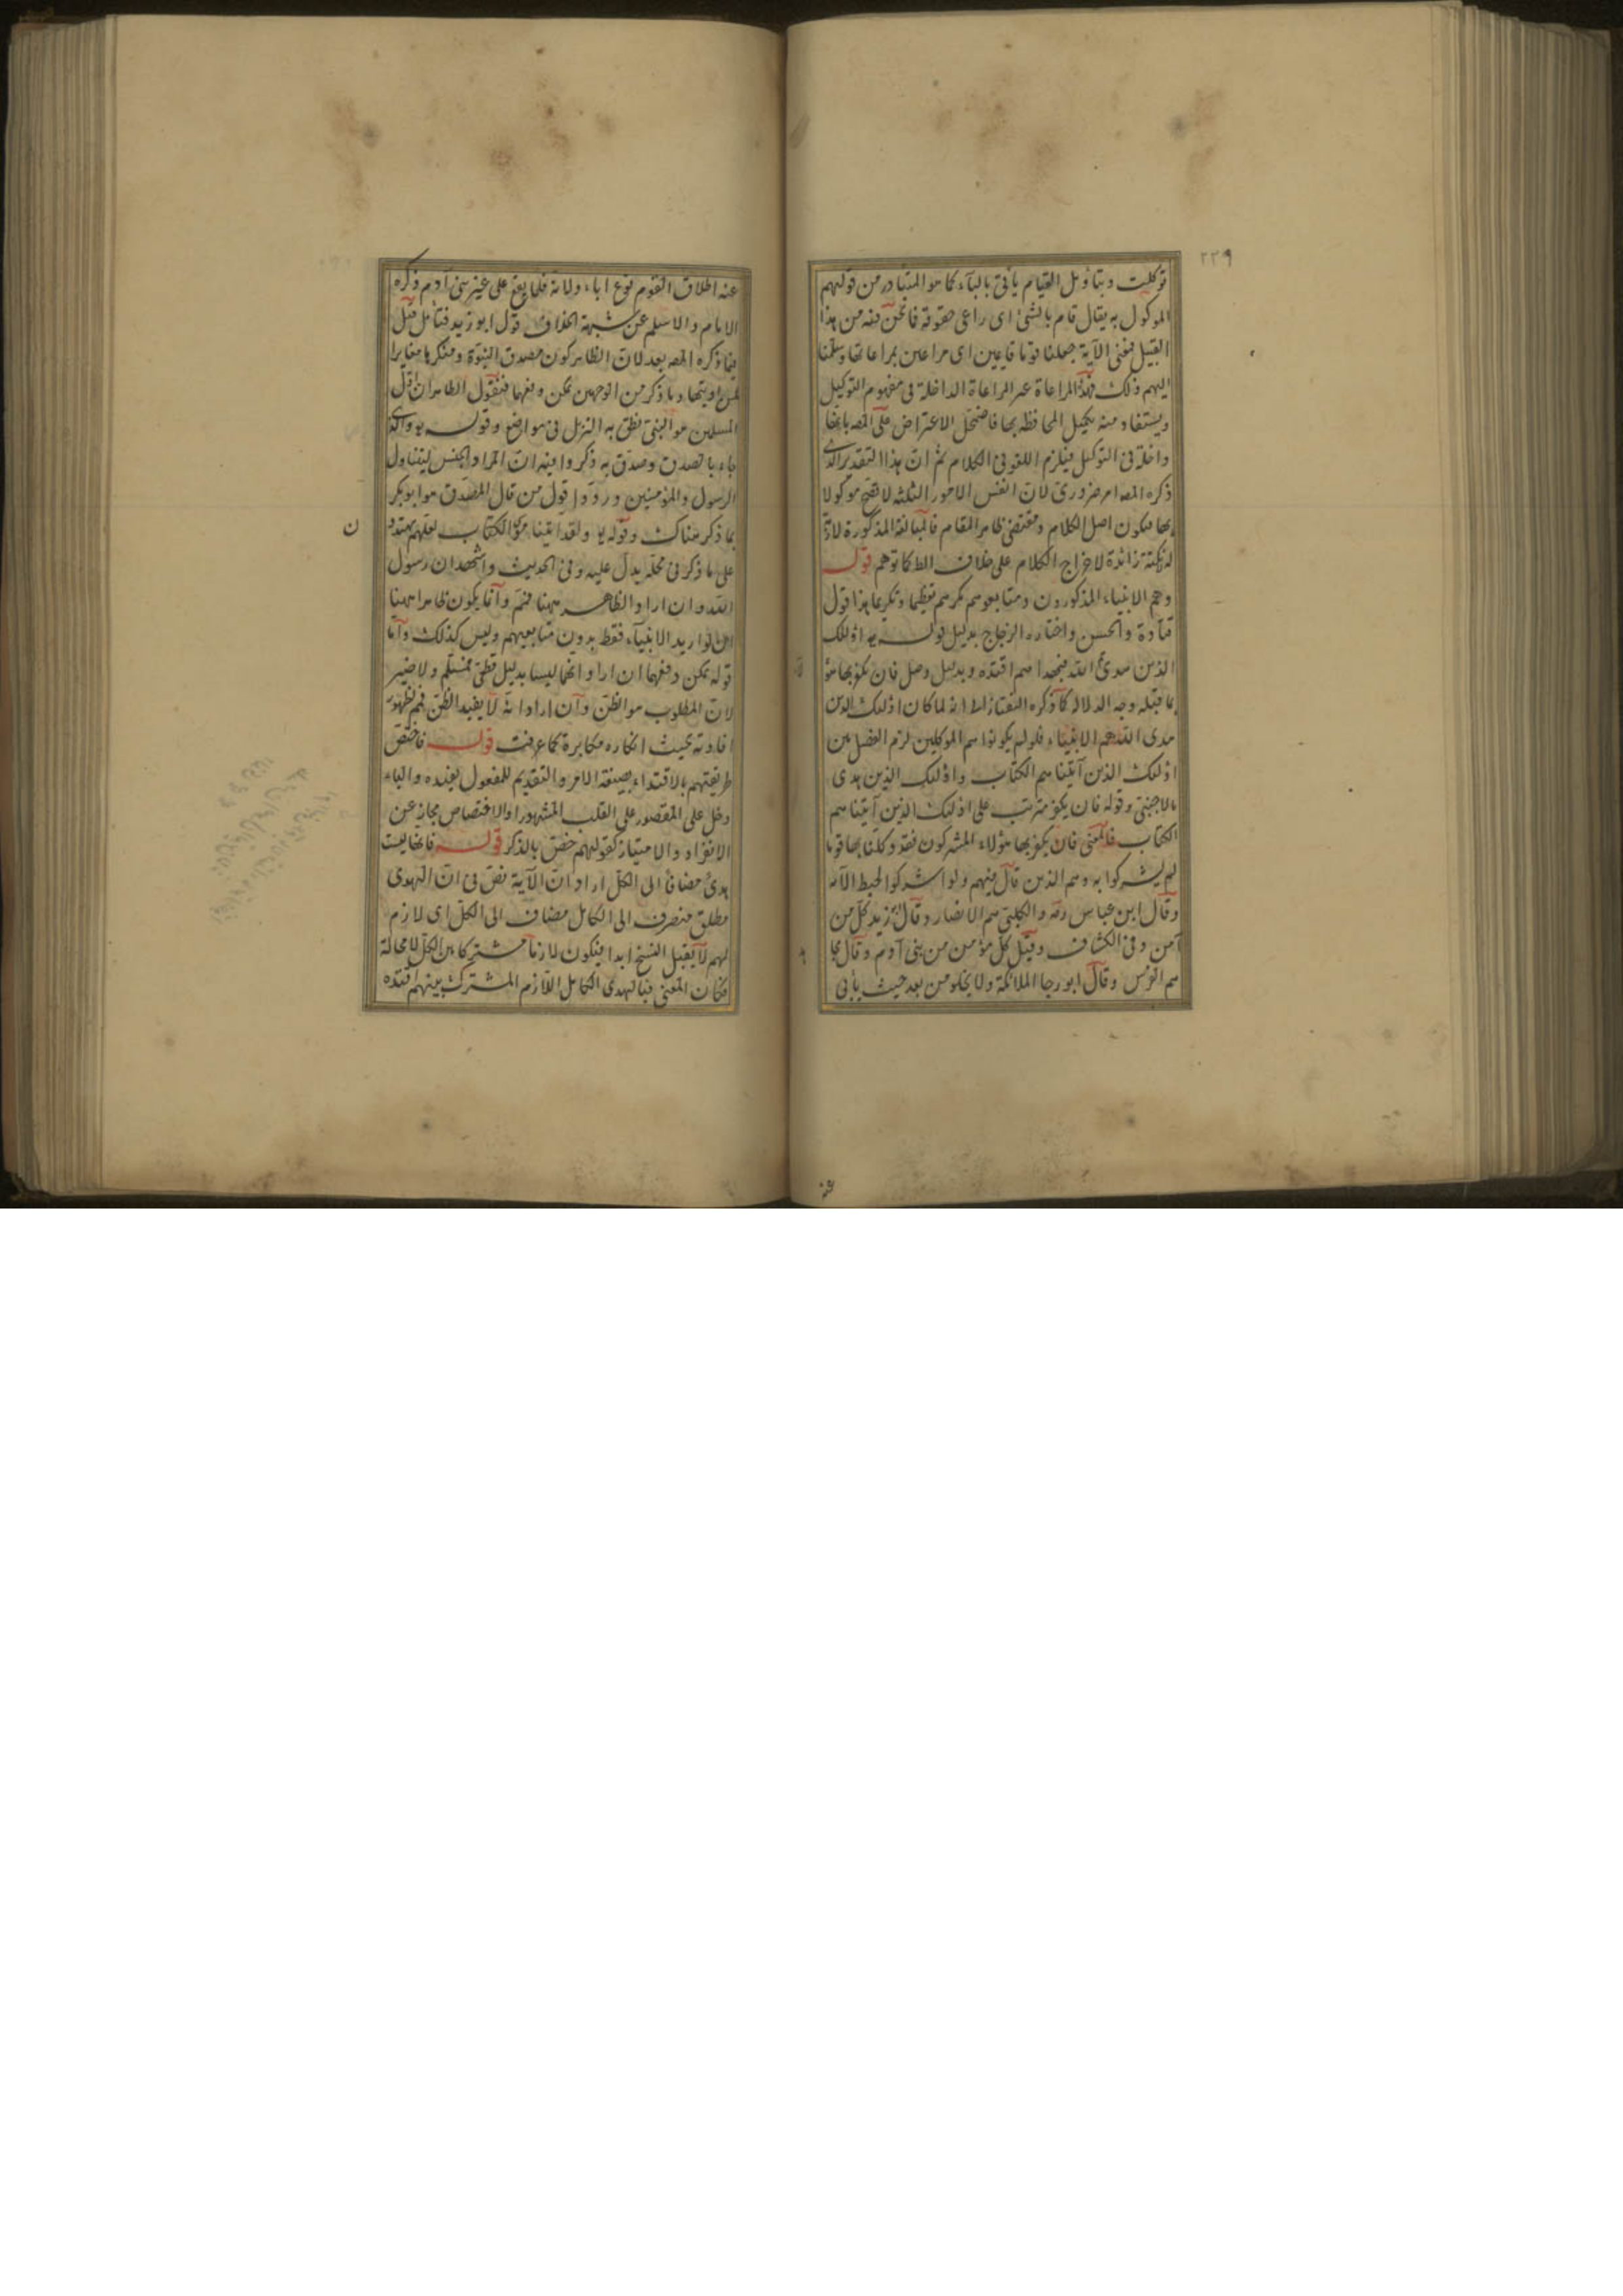 ٢٢٩
توكلت وبتأويل القيام يأتى بالباء كما هو المتبادر من قولهم
الموكول به يقال قام بالشئ اى راعى حقوقه فانحن فيه من هذا
القبيل فمعنى الآية جعلنا قوما قايمين اى مراعين بمراعاتها وسلمنا
اليهم وذلك فهذا المراعاة عبر المراعاة الداخلة فى مفهوم التوكيل
ويستفاد منه تكميل المحافظة بها فاضمحل الاعتراض على المصه بانها
داخلة فى التوكيل فيلزم اللغو فى الكلام ثم ان هذا التقدير الذى
ذكره المصه امر ضرورى لان انفس الامور الثلثة لا تقع موكولا
بها فيكون اصل الكلام ومقتضى ظاهر المقام فالمبالغة المذكورة لازمة
له نكتة زائدة لاخراج الكلام على خلاف الظ كما توهم قوله
وهم الانبياء المذكورون ومتابعوهم كرهم تعظيما وتكريما هذا قول
قتادة والحسن واختاره الزجاج بدليل قوله تع اولئك
الذين هدى الله فبهديهم اقتده وبدليل وصل فان يكفر بها هؤ
بما قبله وجه الدلالة كما ذكره التفتازانى انه لما كان اولئك الذين
هدى الله هم الانبياء فلو لم يكونوا هم الموكلين لزم الفصل بين
اولئك الذين آتيناهم الكتاب واولئك الذين هدى
بالاجنبى وقوله فان يكفر مترتب على اولئك الذين آتيناهم
الكتاب فالمعنى فان يكفر بها هؤلاء المشركون فقد وكلنا بها قوما
لم يشركوا به وهم الذين قال فيهم ولو اشركوا لحبط الآية
وقال ابن عباس رضه والكلبى هم الانصار وقال ابو زيد كل من
آمن وفى الكشاف وقيل كل مؤمن من بنى آدم وقال مجا
هم الفرس وقال ابو رجا الملائكة ولا يخلو من بعد حيث يأبى
عنه
عنه اطلاق القوم نوع اباء ولانه قلما يقع على غير بنى آدم ذكره
الامام والاسلم عن شبهة الخلاف قول ابو زيد فتأمل قيل
فيما ذكره المصه بعد لان الظاهر كون مصدق النبوة ومنكرها مغايرا
لمن اوتيها وما ذكر من الوجهين يمكن دفعها فنقول الظاهر ان اول
المسلمين هو النبى نطق به التنزل فى مواضع وقوله تع والذى
جاء بالصدق وصدق به ذكروا فيه ان المراد الجنس ليتناول
الرسول والمؤمنين وردوا قول من قال المصدق هو ابو بكر
بما ذكر هناك وقوله تع ولقد اتينا موسى الكتاب لعلهم يهتدو
ن
على ما ذكر فى محله يدل عليه وفى الحديث واشهد ان رسول
الله وان اراد الظاهر ههنا فنعم وانما يكون ظاهرا ههنا
ان لو اريد الانبياء فقط بدون متابعيهم وليس كذلك واما
قوله يمكن دفعهما ان اراد انهما ليسا بدليل قطعى فمسلم ولا ضير
لان المطلوب هو الظن وان اراد انه لا يفيد الظن فمع ظهور
افادته بحيث انكاره مكابرة كما عرفت قوله فاختص
طريقتهم بالاقتداء بصيغة الامر والتقديم للمفعول يفيده والباء
دخل على المقصور على القلب المشهور او الاختصاص مجاز عن
الانفراد والامتياز كقولهم خص بالذكر قوله فانها ليست
هدى مضافا الى الكل اراد ان الآية نص فى ان الهدى
مطلق منصرف الى الكامل مضاف الى الكل اى لازم
لهم لا يقبل النسخ ابدا فيكون لازما مشتركا بين الكل لا محالة
فكان المعنى فبالهدى الكامل اللازم المشترك بينهم اقتده